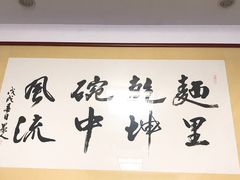 麵里
乾坤
碗中
風流
戊戌春日